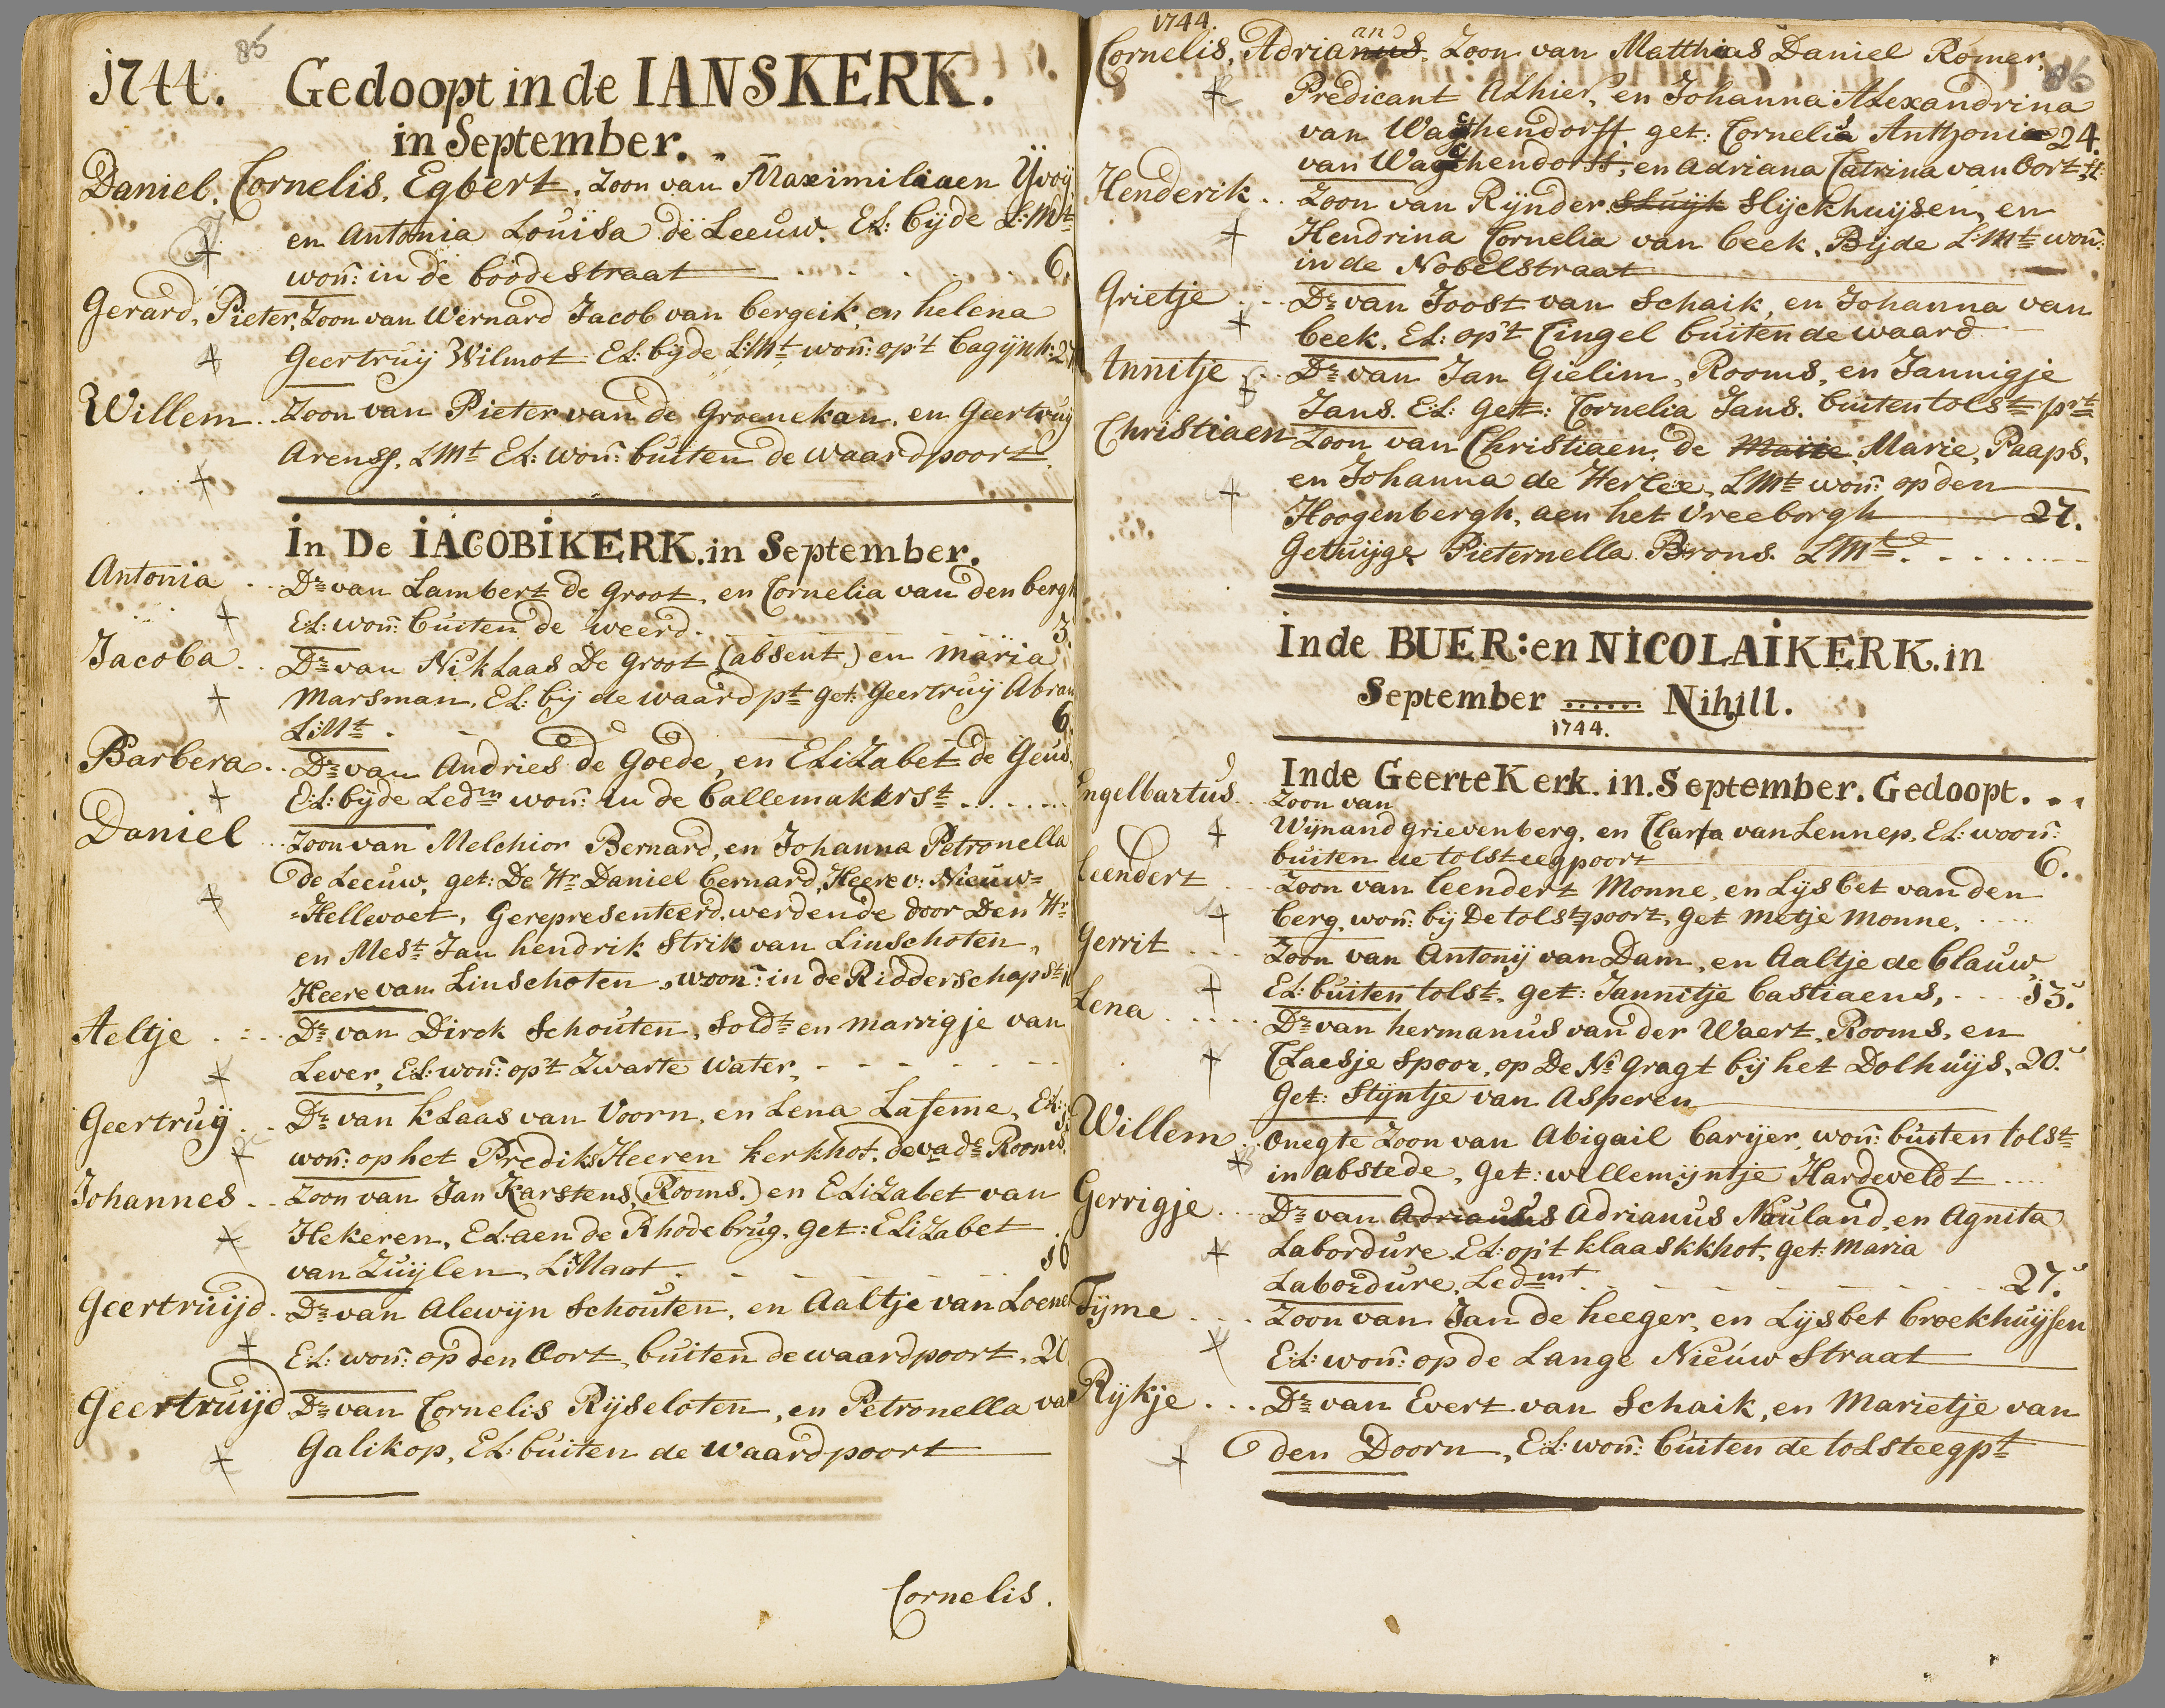 85
1744. Gedoopt in de IANSKERK.
in September.
Daniel. Cornelis. Egbert. Zoon van Maximiliaen Yvoij
en Antonia Louisa de Leeuw. EL: bijde L:Mt
won: in de boodestraat 6.
Gerard, Pieter, Zoon van Wernard Jacob van bergeik, en helena
Geertruij Wilmot EL: bijde L:Mt won: op't bagijnh: 27
Willem Zoon van Pieter van de Groenekan, en Geertruij
Arenss, LMt EL: won: buiten de waardpoort.
In De IACOBIKERK. in September.
Antonia Dr van Lambert de Groot, en Cornelia van den bergh
EL: won: buiten de weerd. 3.
Jacoba Dr van Niklaas De Groot (absent) en maria
Marsman, EL: bij de waardpt get: Geertruij Abram
L:Mt. 6
Barbera Dr van Andries de Goede, en ELiZabet de Geus.
EL: bijde Ledm won: in de ballemakkrst
Daniel Zoon van Melchior Bernard, en Johanna Petronella
de Leeuw, get: De Hr Daniel bernard, Heere v: Nieuw=
=Hellevoet, Gerepresenteerd. werdende door Den Hr
en Mest Jan hendrik Strik van Linschoten,
Heere van Linschoten, woon: in de Ridderschapst
Aeltje Dr van Dirck Schouten, Soldt en marrigje van
Lever, EL: won: op't Zwarte Water,
Geertruij Dr van kLaas van Voorn, en Lena Lafeme, EL:
won: op het PrediksHeeren kerkhof, de vadr Rooms.
Johannes Zoon van Jan Karstens, (Rooms.) en ELiZabet van
Hekeren, EL: aen de Rhodebrug. get: ELiZabet
van Zuijlen, LiMaat.
Geertruijd Dr van Alewijn Schouten, en Aaltje van Loenen
EL: won: op den Oort, buiten de waardpoort, 20
Geertruijd Dr van Cornelis Rijseloten, en Petronella van
Galikop, EL: buiten de waardpoort
Cornelis.
1744.
86
an
Cornelis, Adrianus. Zoon van Matthias Daniel Romer,
Predicant ALhier, en Johanna ALexandrina
van Wachendorff get: Cornelia Anthonia 24.
van Wachendorff, en Adriana Catrina van Oort
Henderik Zoon van Rijnder Sluijk Slijckhuijsen, en
Hendrina Cornelia van beek, Bijde L:Mt won:
in de Nobelstraat
Grietje Dr van Joost van Schaik, en Johanna van
beek. EL: op't Cingel buiten de waard
Annitje Dr van Jan Gielim, Rooms, en Jannigje
Jans. EL: Get: Cornelia Jans. buiten tolst prt
Christiaen Zoon van Christiaen, de Marie, Paaps,
en Johanna de Herlee, LMt won: op den
Hoogenbergh, aen het Vreeborgh 27.
Getuijge Pieternella Brons. LMt.
Inde BUER: en NICOLAIKERK. in
September ...... Nihill.
1744.
Inde GeerteKerk. in. September. Gedoopt.
Engelbartus Zoon van
Wijnand grievenberg, en Clara van Lennep, EL: woon:
buiten de tolsteegpoort 6.
Leendert Zoon van Leendert Monne, en Lijsbet van den
berg, won: bij De tolstpoort, get metje monne,
Gerrit Zoon van Antonij van Dam, en Aaltje de blauw,
EL: buiten tolst, get: Jannitje bastiaens, 13.
Lena Dr van hermanus van der Waert, Rooms, en
CLaesje Spoor, op De No gragt bij het Dolhuijs, 20.
Get: Stijntje van Asperen
Willem Onegte Zoon van Abigail barijer, won: buiten tolst
in abstede, Get: willemijntje Hardeveldt
Gerrigje Dr van Adrianus Adrianus Nauland, en Agnita
Labordure EL: op't klaaskkhof, get: maria
Labordure, Ledmt 27.
Tijme Zoon van Jan de heeger, en Lijsbet broekhuijsen
EL: won: op de Lange Nieuw Straat
Rijkje Dr van Evert van Schaik, en Marietje van
den Doorn, EL: won: buiten de toLsteegpt